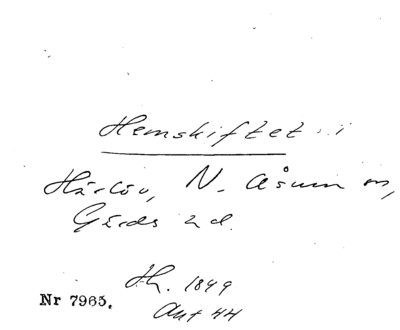 Hemskiftet i
Härlöv, N. Åsum m,
Gärds hd.
Hh. 1849
Akt 44
Nr 7965.